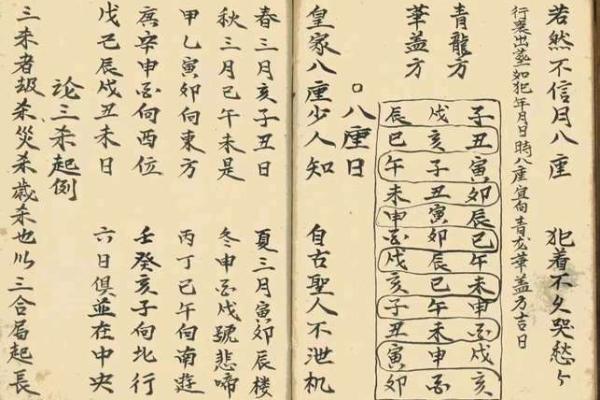 若然不信月八座 犯着不久哭愁々
行喪出葬如犯年月日時八座宜向青龙華盖方吉日
青龍方
華盖方
子丑寅卯辰巳午未申酉戌亥
戌亥子丑寅卯辰巳午未申酉
辰巳午未申酉戌亥子丑寅卯
○八座日
皇家八座少人知 自古聖人不泄机
春三月亥子丑日 夏三月寅卯辰楼
秋三月巳午未是 冬申酉戌號悲啼
甲乙寅卯向東方 丙丁巳午向南遊
庚辛申酉向西位 壬癸亥子向北行
戊己辰戌丑未日 六日俱並在中央
論三杀起例
三来者刼杀災杀歲杀也以三合局起長